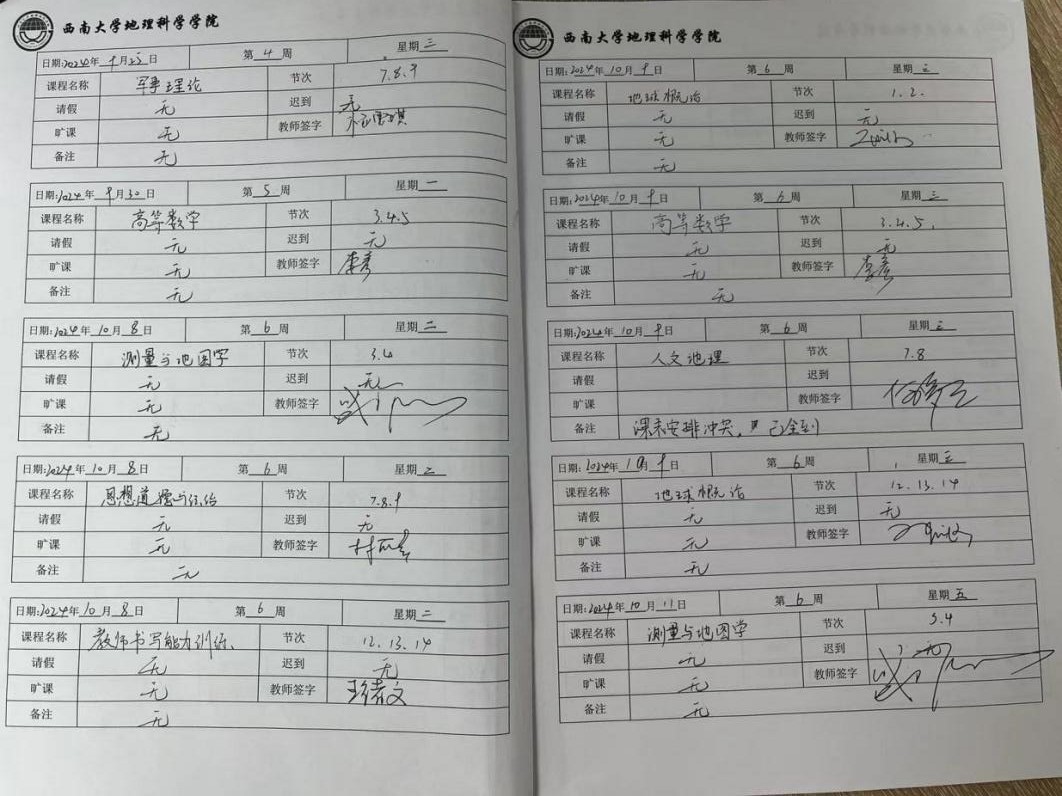 西南大学地理科学学院
日期:2024年9月25日 第4周 星期三
课程名称 军事理论 节次 7.8.9
请假 无 迟到 无
旷课 无 教师签字
备注 无
日期:2024年9月30日 第5周 星期一
课程名称 高等数学 节次 3.4.5
请假 无 迟到 无
旷课 无 教师签字 李彦
备注 无
日期:2024年10月8日 第6周 星期二
课程名称 测量与地图学 节次 3.4
请假 无 迟到 无
旷课 无 教师签字
备注 无
日期:2024年10月8日 第6周 星期二
课程名称 思想道德与法治 节次 7.8.9
请假 无 迟到 无
旷课 无 教师签字
备注 无
日期:2024年10月8日 第6周 星期二
课程名称 教师书写能力训练 节次 12.13.14
请假 无 迟到 无
旷课 无 教师签字
备注 无
西南大学地理科学学院
日期:2024年10月9日 第6周 星期三
课程名称 地球概论 节次 1.2.
请假 无 迟到 无
旷课 无 教师签字
备注 无
日期:2024年10月9日 第6周 星期三
课程名称 高等数学 节次 3.4.5.
请假 无 迟到 无
旷课 无 教师签字 李彦
备注 无
日期:2024年10月9日 第6周 星期三
课程名称 人文地理 节次 7.8
请假 迟到
旷课 教师签字
备注 课表安排冲突, 已全到
日期:2024年10月9日 第6周 星期三
课程名称 地球概论 节次 12.13.14
请假 无 迟到 无
旷课 无 教师签字
备注 无
日期:2024年10月11日 第6周 星期五
课程名称 测量与地图学 节次 3.4
请假 无 迟到 无
旷课 无 教师签字
备注 无